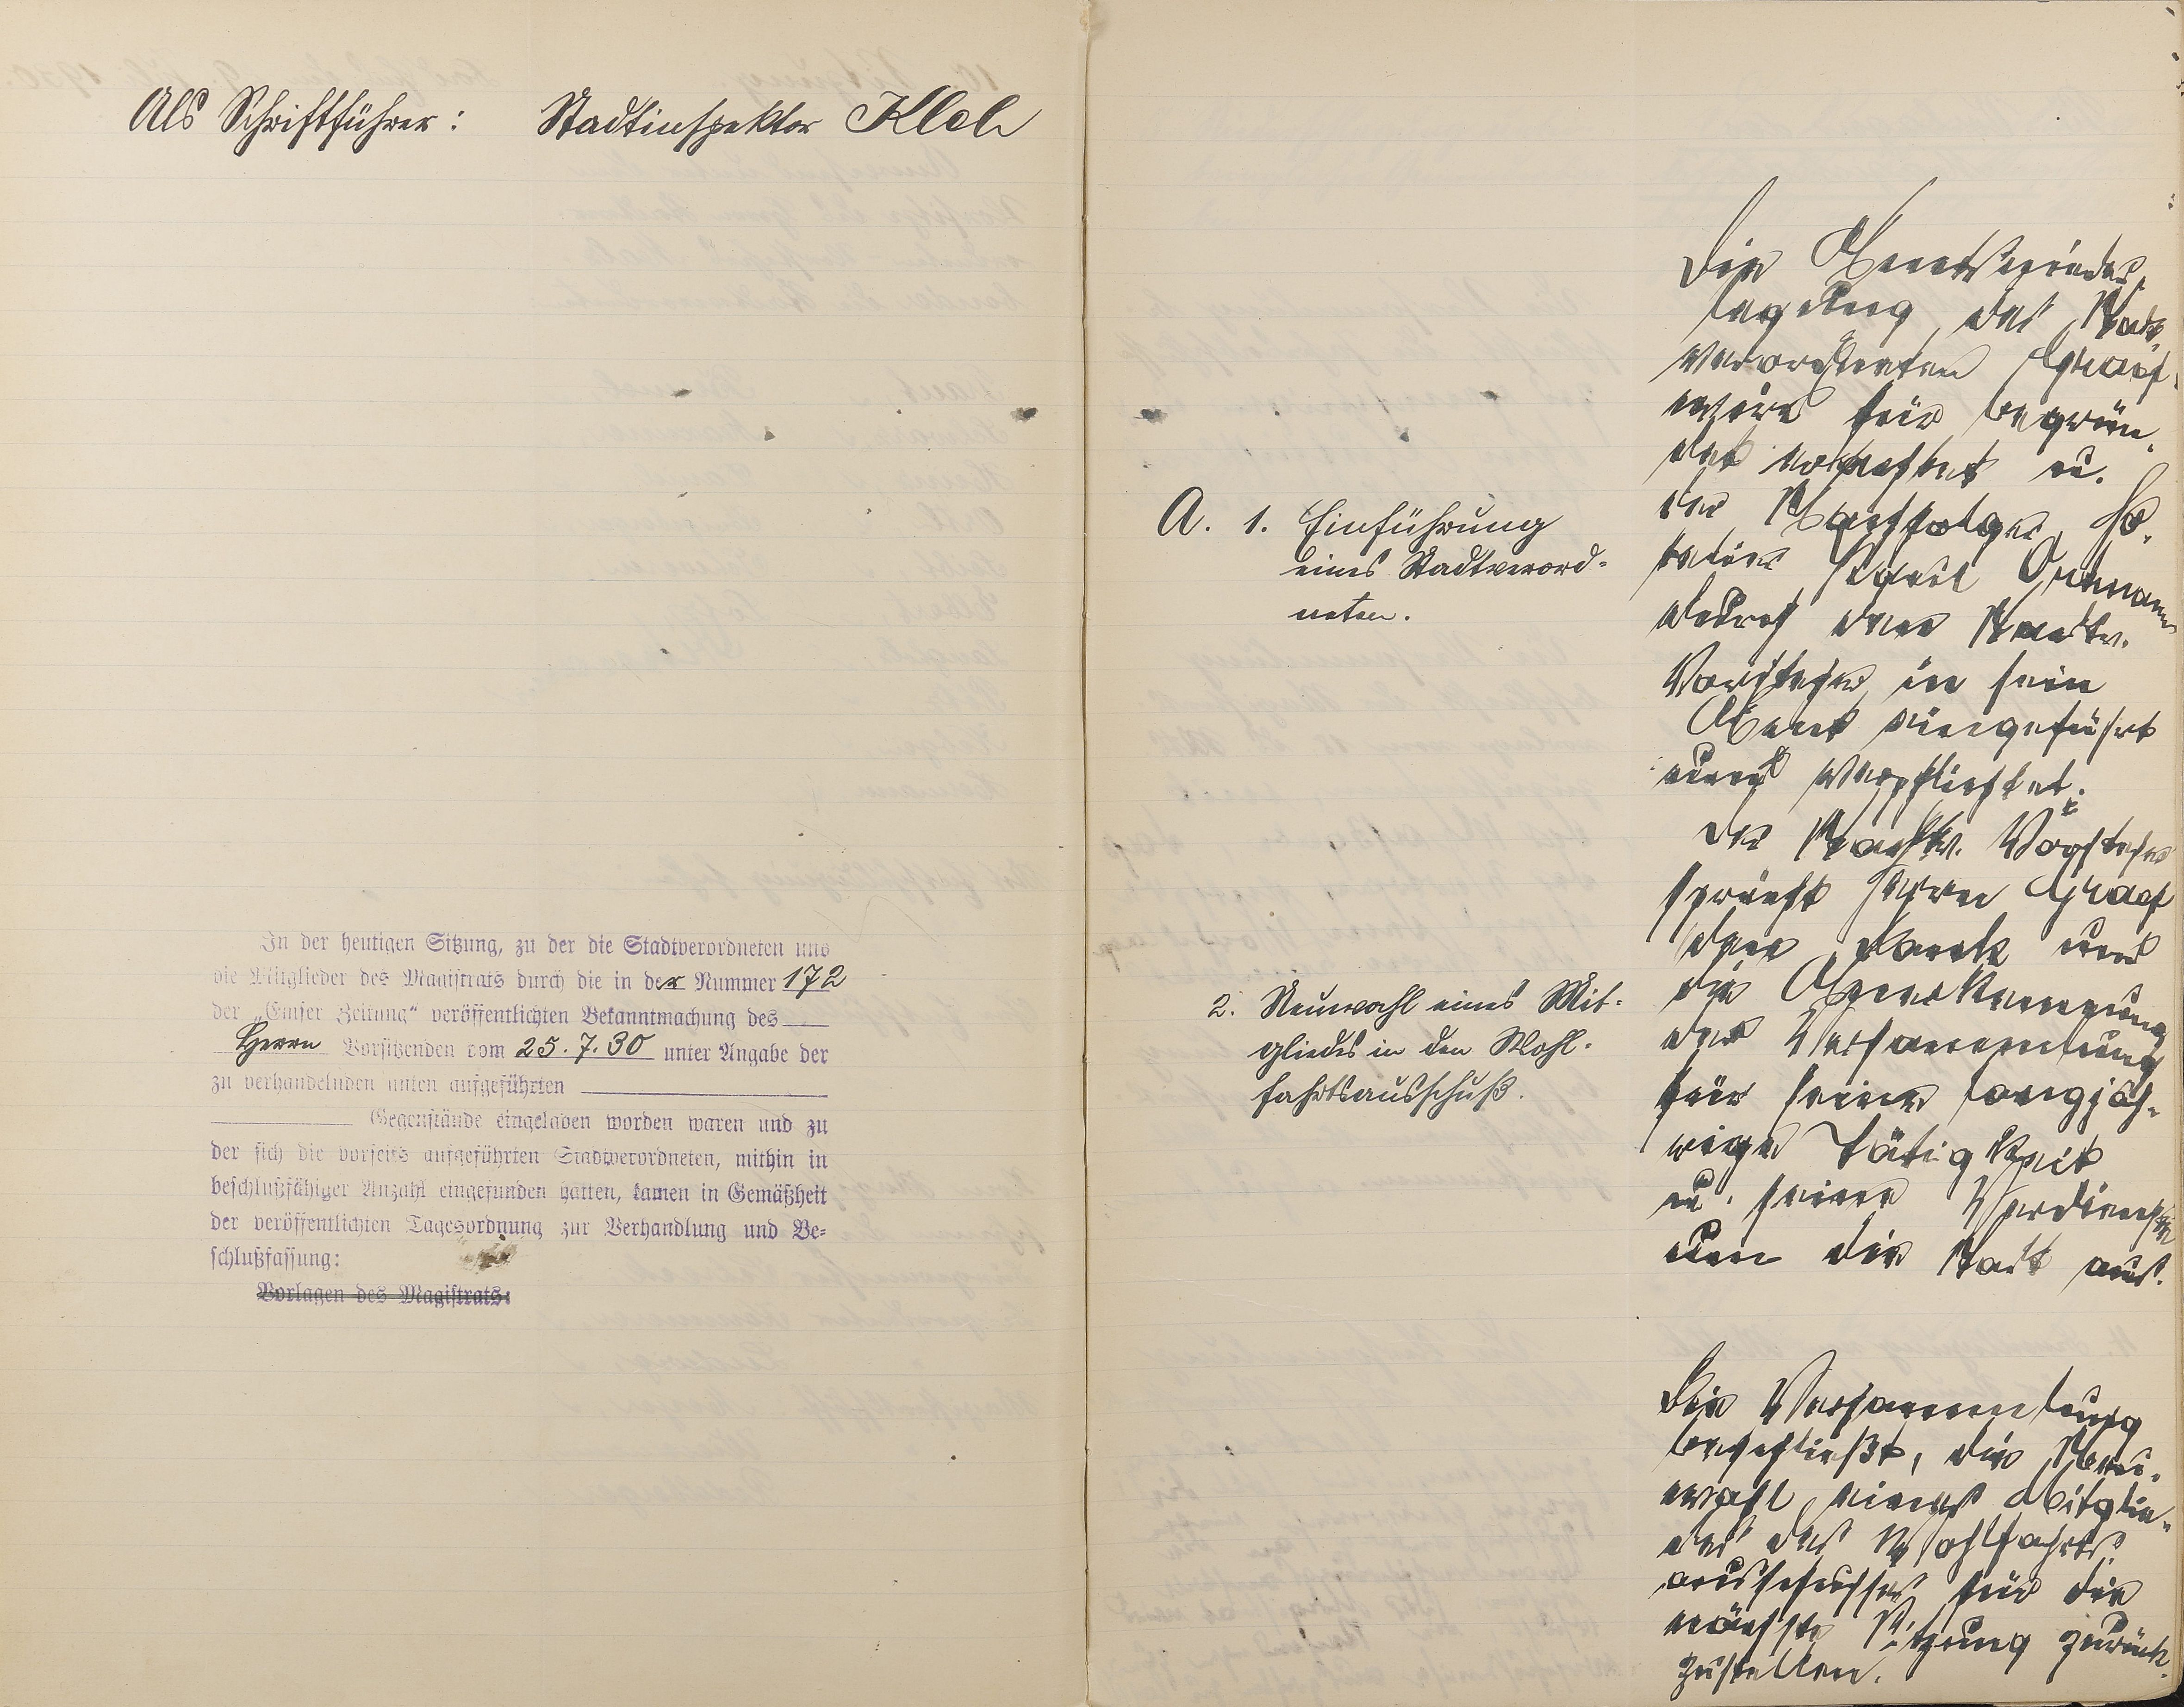 Als Schriftführer: Stadtinspektor Kleb
In der heutigen Sitzung, zu der die Stadtverordneten und
die Mitglieder des Magistrats durch die in der Nummer 172
der „Emser Zeitung“ veröffentlichten Bekanntmachung des
Herrn Vorsitzenden vom 25.7.30 unter Angabe der
zu verhandelnden unten aufgeführten
Gegenstände eingeladen worden waren und zu
der sich die vorseits aufgeführten Stadtverordneten, mithin in
beschlußfähiger Anzahl eingefunden hatten, kamen in Gemäßheit
der veröffentlichten Tagesordnung zur Verhandlung und Be-
schlußfassung:
Vorlagen des Magistrats:
A. 1. Einführung
eines Stadtverord-
neten.
2. Neuwahl eines Mit-
gliedes in den Wohl-
fahrtsausschuß.
Die Amtsnieder-
legung des Stadt-
verordneten Graef
wird für begrün-
det erachtet u.
der Nachfolger, Ho-
telier Ormann
durch den Stadtv.
Vorsteher in sein
Amt eingeführt
und verpflichtet.
Der Stadtv. Vorsteher
spricht Herrn Graef
den Dank und
die Anerkennung
der Versammlung
für seine langjäh-
rige Tätigkeit
u. seine Verdienste
um die Stadt aus.
Die Versammlung
beschließt, die Neu-
wahl eines Mitglie-
des des Wohlfahrts-
ausschusses für die
nächste Sitzung zurück-
zustellen.